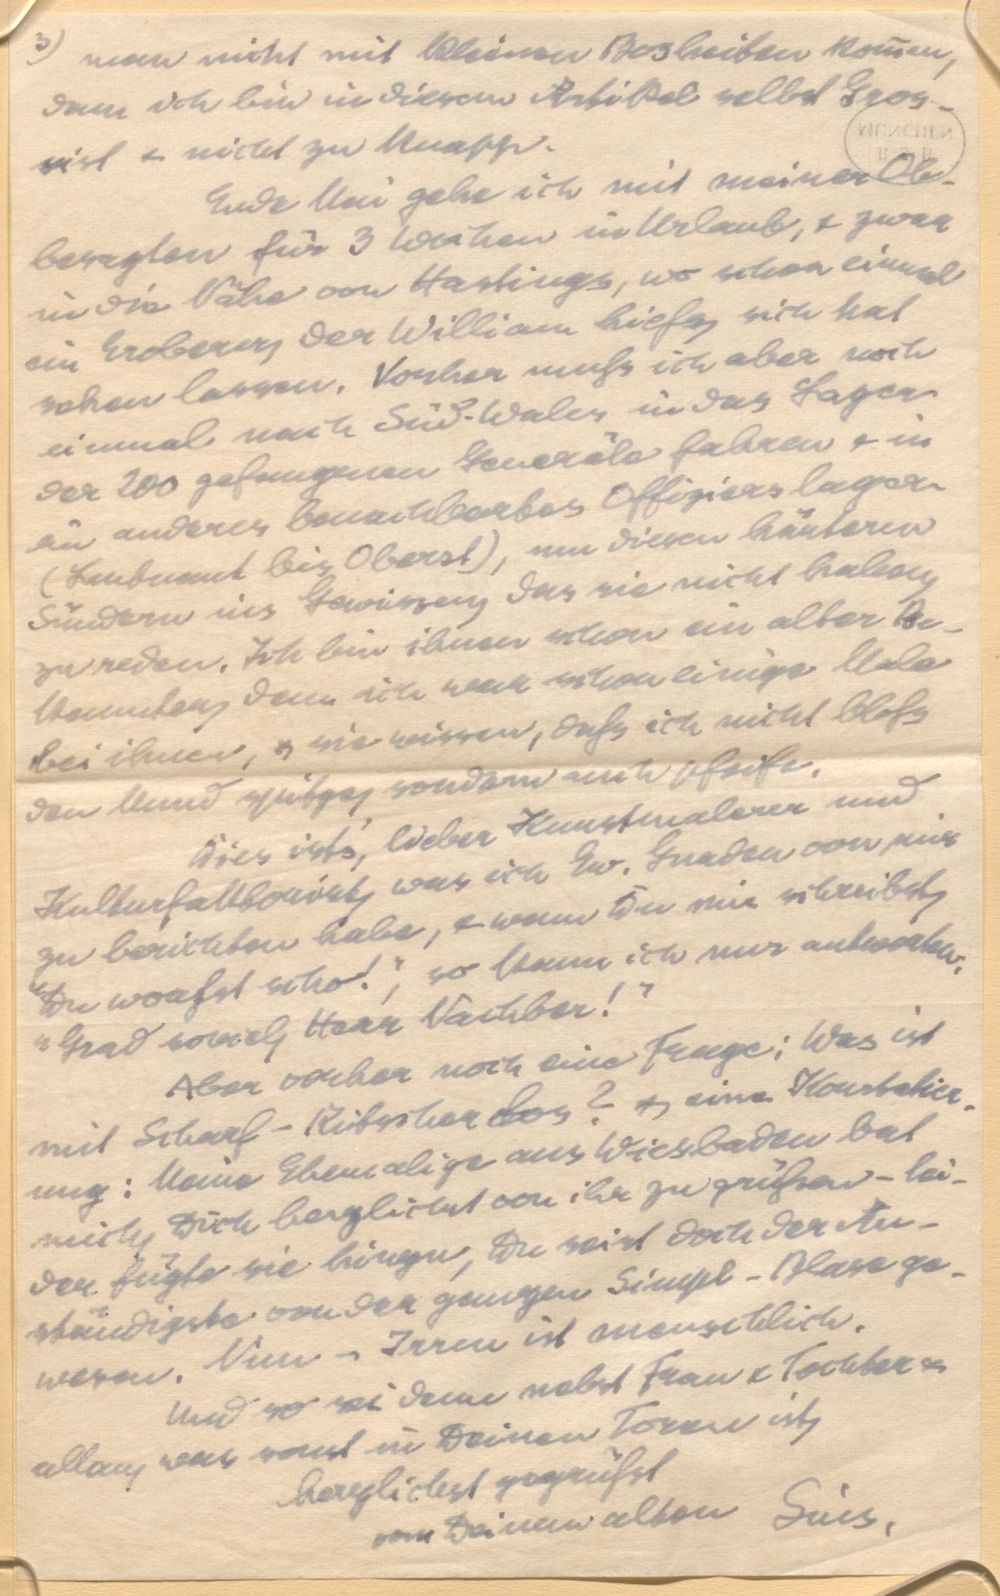 3) man nicht mit kleinen Bosheiten kom̄en,
denn ich bin in diesem Artikel selbst Gros-
sist & nicht zu knapp.
MÜNCHEN
Ende Mai gehe ich mit meiner Ob-
besagten für 3 Wochen in Urlaub, & zwar
in die Nähe von Hastings, wo schon einmal
ein Eroberer, der William hieß, sich hat
sehen lassen. Vorher muß ich aber noch
einmal nach Süd-Wales in das Lager
der 200 gefangenen Generäle fahren & in
ein anderes benachbartes Offizierslager
(Leutnant bis Oberst), um diesen härteren
Sündern ins Gewissen, das sie nicht haben,
zu reden. Ich bin ihnen schon ein alter Be-
kannter, denn ich war schon einige Male
bei ihnen, & sie wissen, daß ich nicht bloß
den Mund spitze, sondern auch pfeife.
Dies ist's, lieber Kunstmalerer und
Kulturfaltboist, was ich Ew. Gnaden von mir
zu berichten habe, & wenn Du mir schreibst,
"Du woaßt scho!", so kann ich nur antworten,
"Grad soviel, Herr Nachber!"
Aber vorher noch eine Frage: Was ist
mit Scharf-Kitscher los? & eine Konstatier-
ung: Meine Ehemalige aus Wiesbaden bat
mich, Dich herzlichst von ihr zu grüßen - lei-
der fügte sie hinzu, Du seist doch der An-
ständigste von der ganzen Simpl-Blase ge-
wesen. Nun - Irren ist menschlich.
Und so sei denn nebst Frau & Tochter &
allem, was sonst in Deinen Toren ist,
herzlichst gegrüßt
von Deinem alten